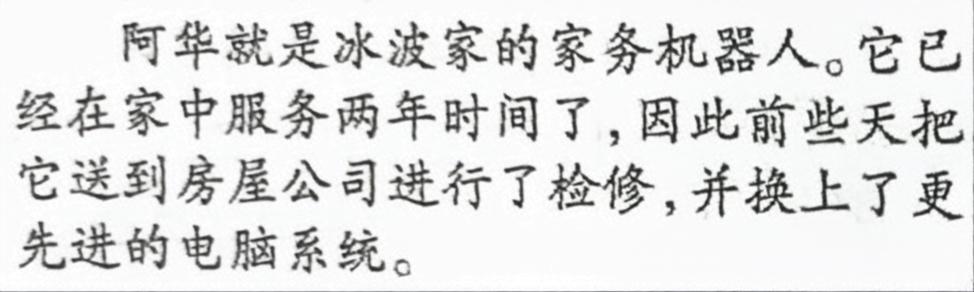 阿华就是冰波家的家务机器人。它已
经在家中服务两年时间了,因此前些天把
它送到房屋公司进行了检修,并换上了更
先进的电脑系统。